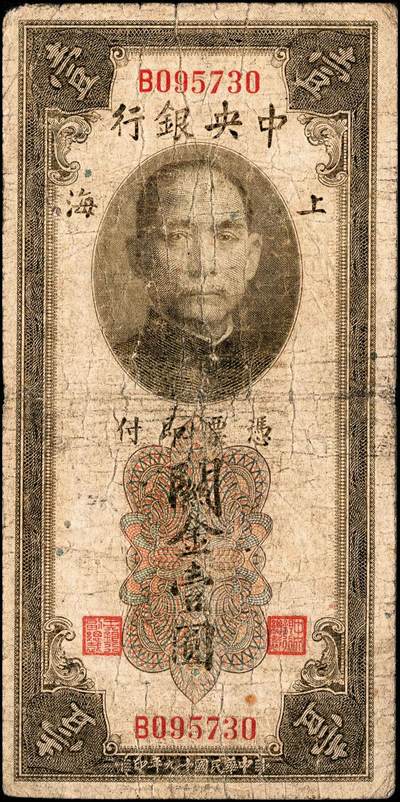 壹 壹
B095730
中央銀行
上海
憑票即付
關金壹圓
B095730
壹 壹
中華民國十九年印